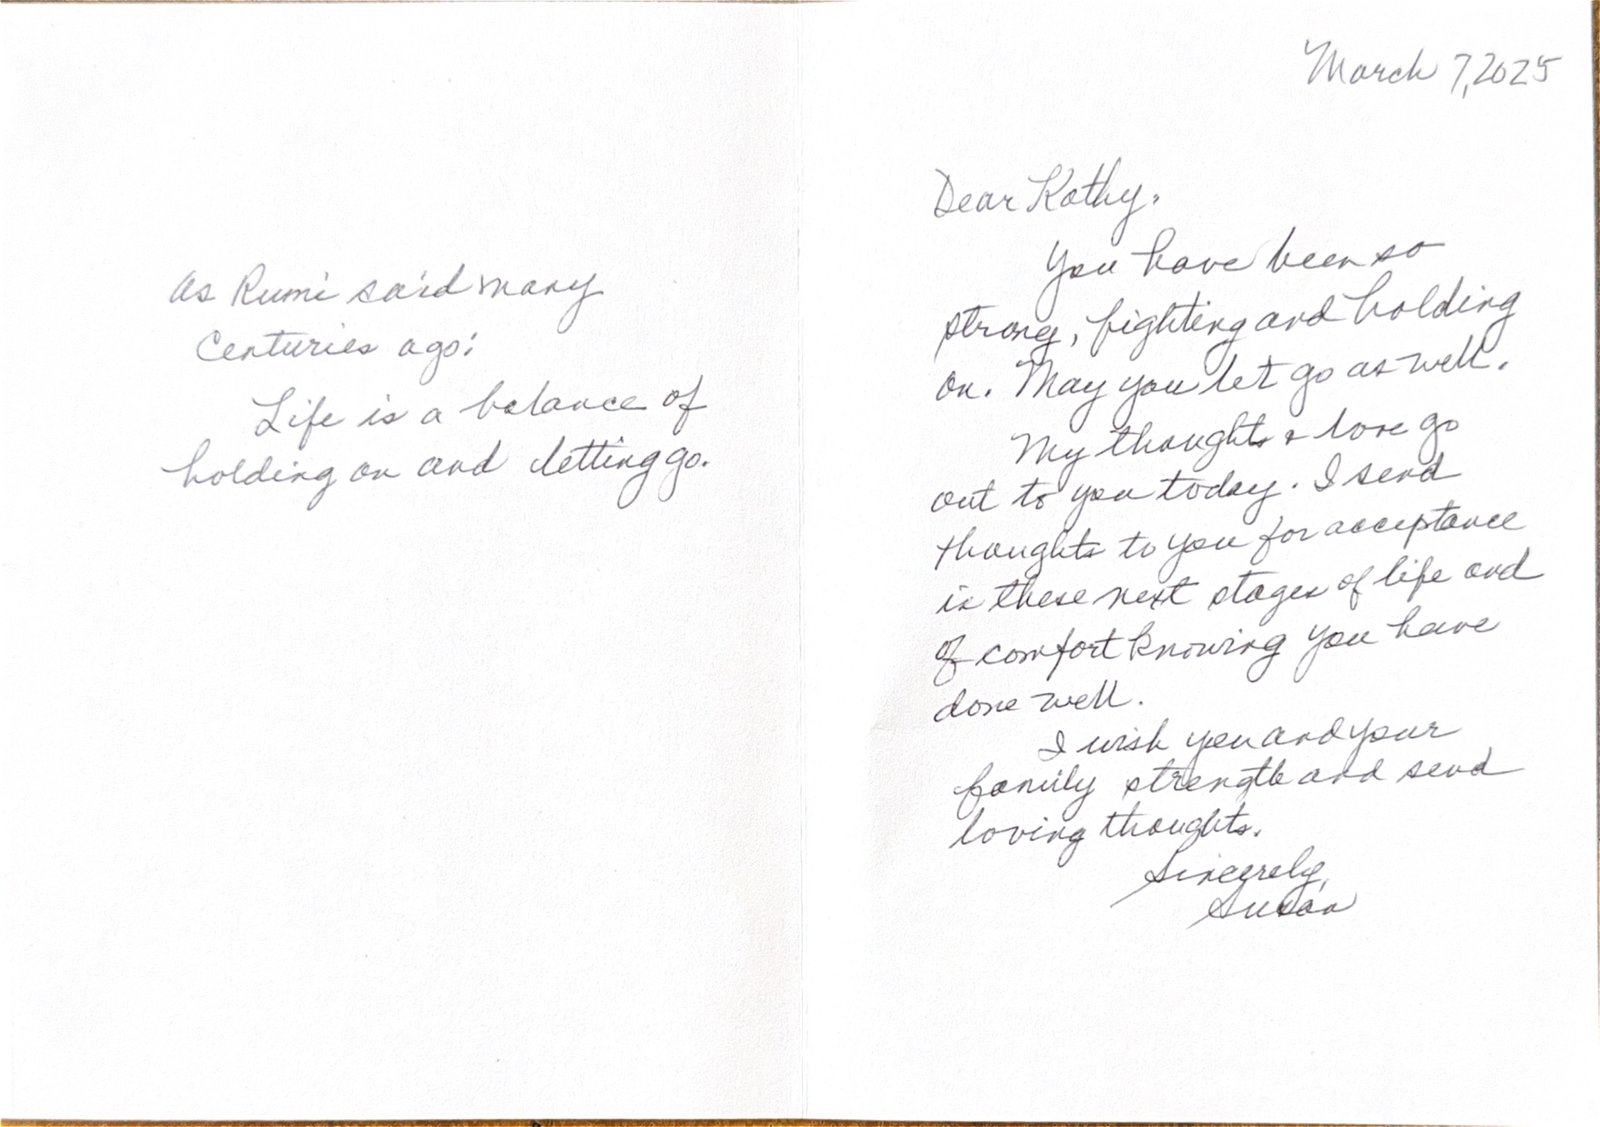 As Rumi said many
Centuries ago:
Life is a balance of
holding on and letting go.
March 7, 2025
Dear Kathy,
You have been so
strong, fighting and holding
on. May you let go as well.
My thoughts & love go
out to you today. I send
thoughts to you for acceptance
in these next stages of life and
of comfort knowing you have
done well.
I wish you and your
family strength and send
loving thoughts.
Sincerely,
Susan